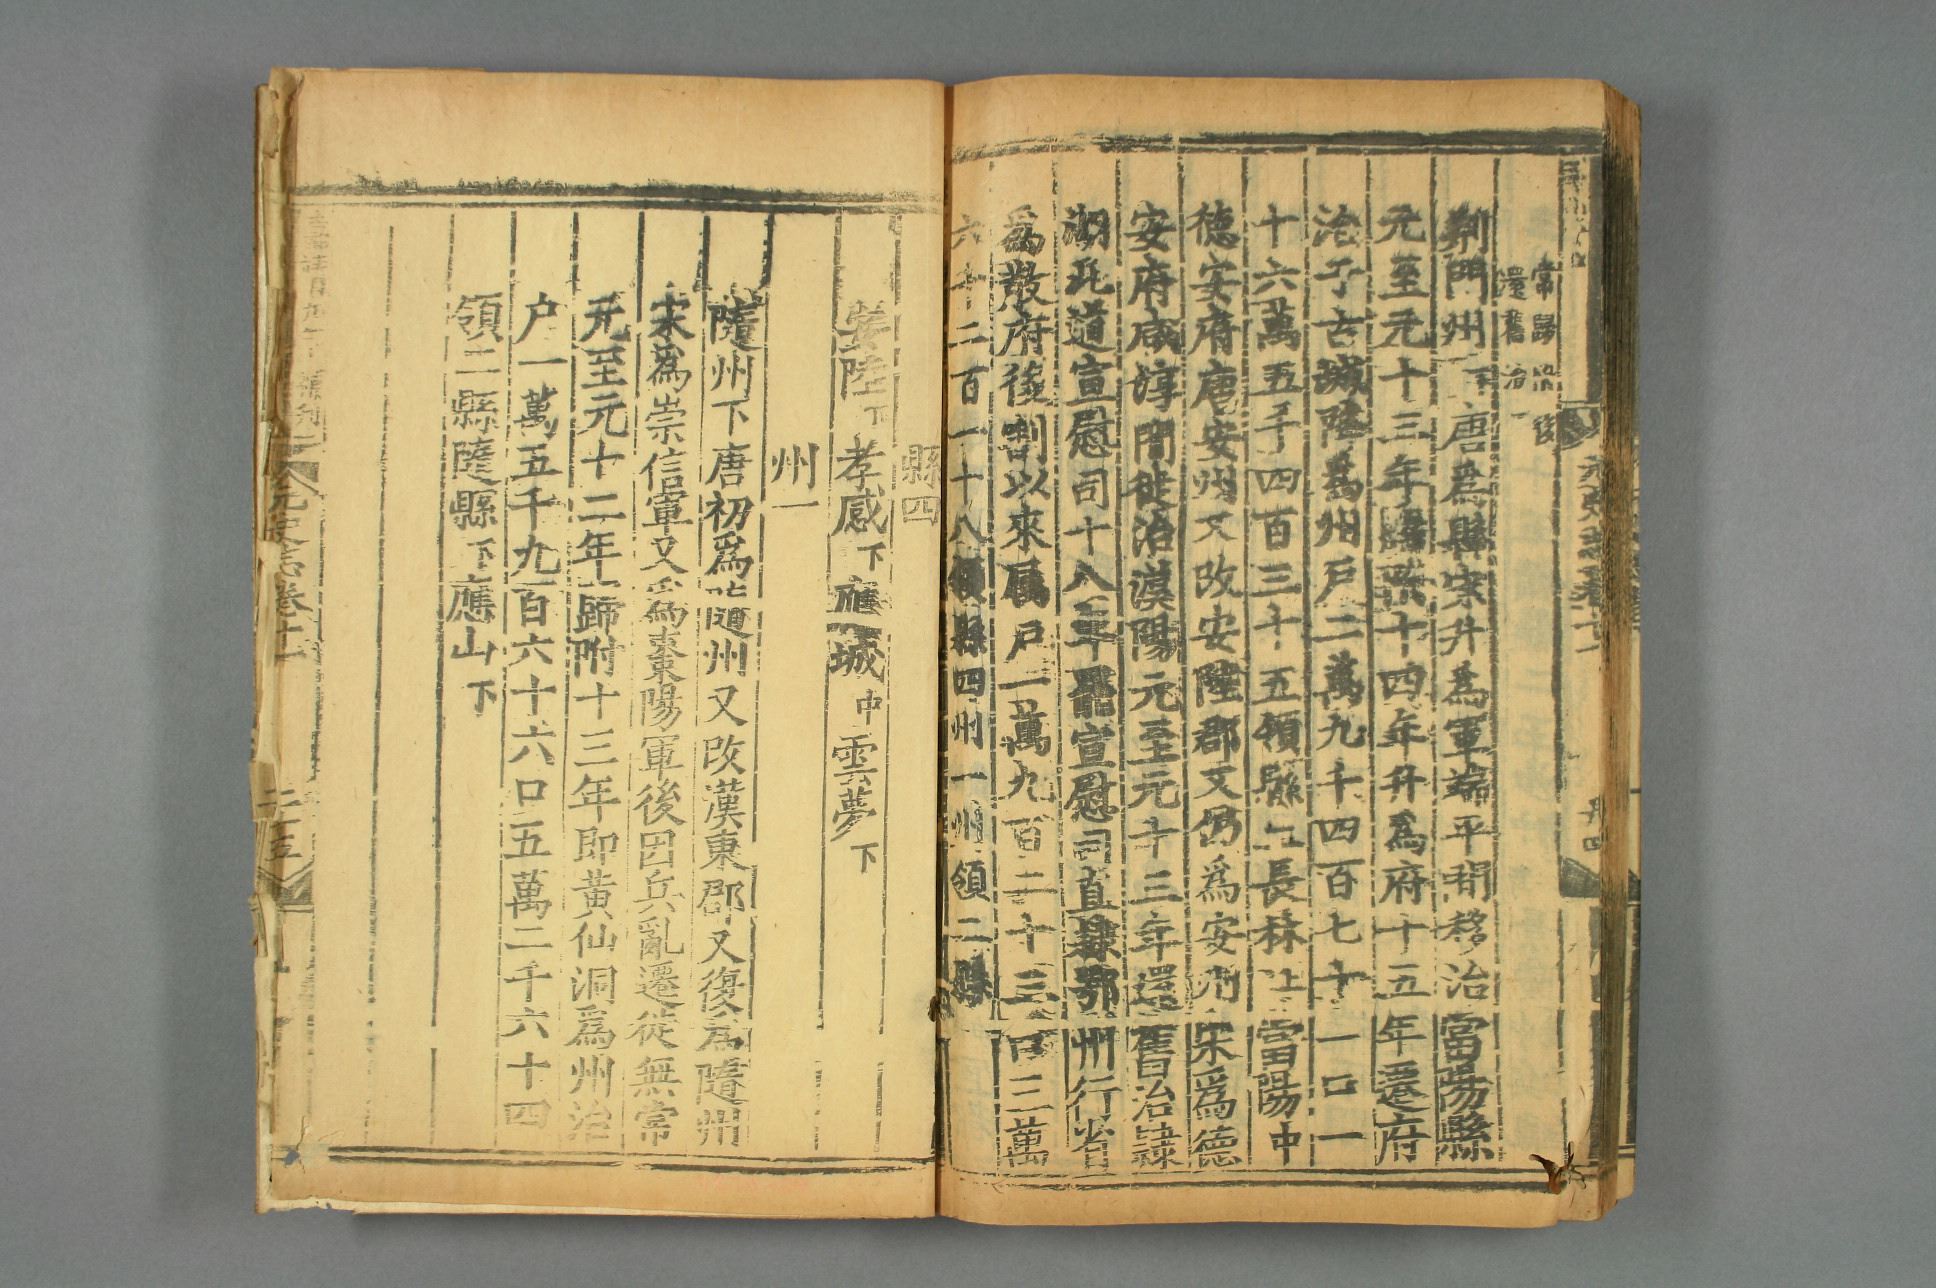 常歸州後
還舊治
荆門州下唐爲縣宋升爲軍端平間移治當陽縣
元至元十三年歸附十四年升爲府十五年遷府
治于古城降爲州戸二萬九千四百七十一口一
十六萬五千四百三十五領縣二長林上當陽中
德安府唐安州又改安陸郡又仍爲安州宋爲德
安府咸淳間徙治漢陽元至元十三年還舊治隸
湖北道宣慰司十八年罷宣慰司直隸鄂州行省
爲散府後割以來屬戸一萬九百二十三口三萬
六千二百一十八領縣四州一州領二縣
縣四
安陸下孝感下應城中雲夢下
州一
隨州下唐初爲隨州又改漢東郡又復爲隨州
宋爲崇信軍又爲棗陽軍後因兵亂遷徙無常
元至元十二年歸附十三年即黃仙洞爲州治
户一萬五千九百六十六口五萬二千六十四
領二縣隨縣下應山下
元史志卷十一
二十五